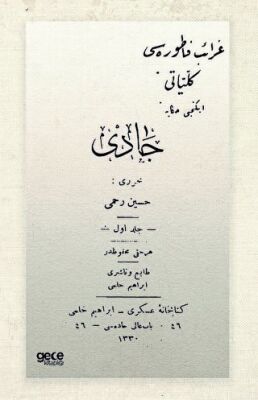 غرائب فاطوره‌سی
كلیاتی
ایكنجی حكایه
جادی
محرری :
حسین رحمی
— جلد اول —
هر حقی محفوظدر
طابع و ناشری
ابراهیم حلمی
كتابخانهٔ عسكری – ابراهیم حلمی
٤٦ · باب عالی جاده‌سی – ٤٦
١٣٣٠
gece